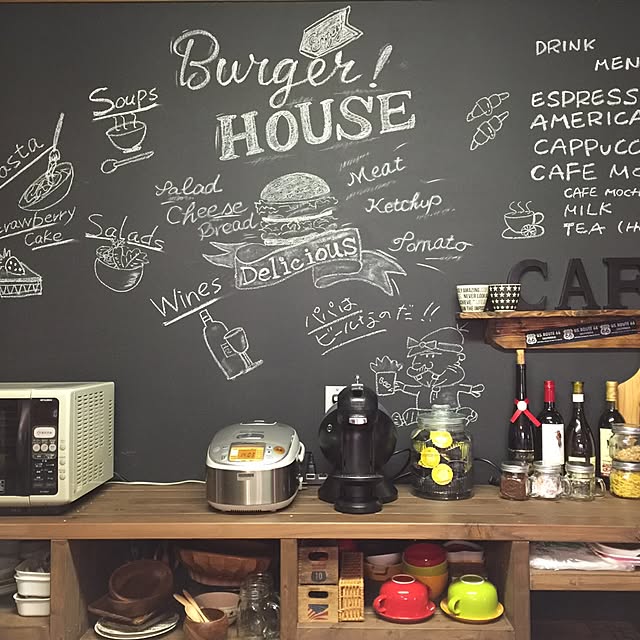 Burger!
HOUSE
Soups
Pasta
Strawberry
Cake
Salads
Wines
Salad
Cheese
Bread
Meat
Ketchup
Tomato
Delicious
パパは
ビールなのだ!!
DRINK
MEN
ESPRESS
AMERICA
CAPPUCC
CAFE MO
CAFE MOCH
MILK
TEA (H
CAF
U.S. ROUTE 66